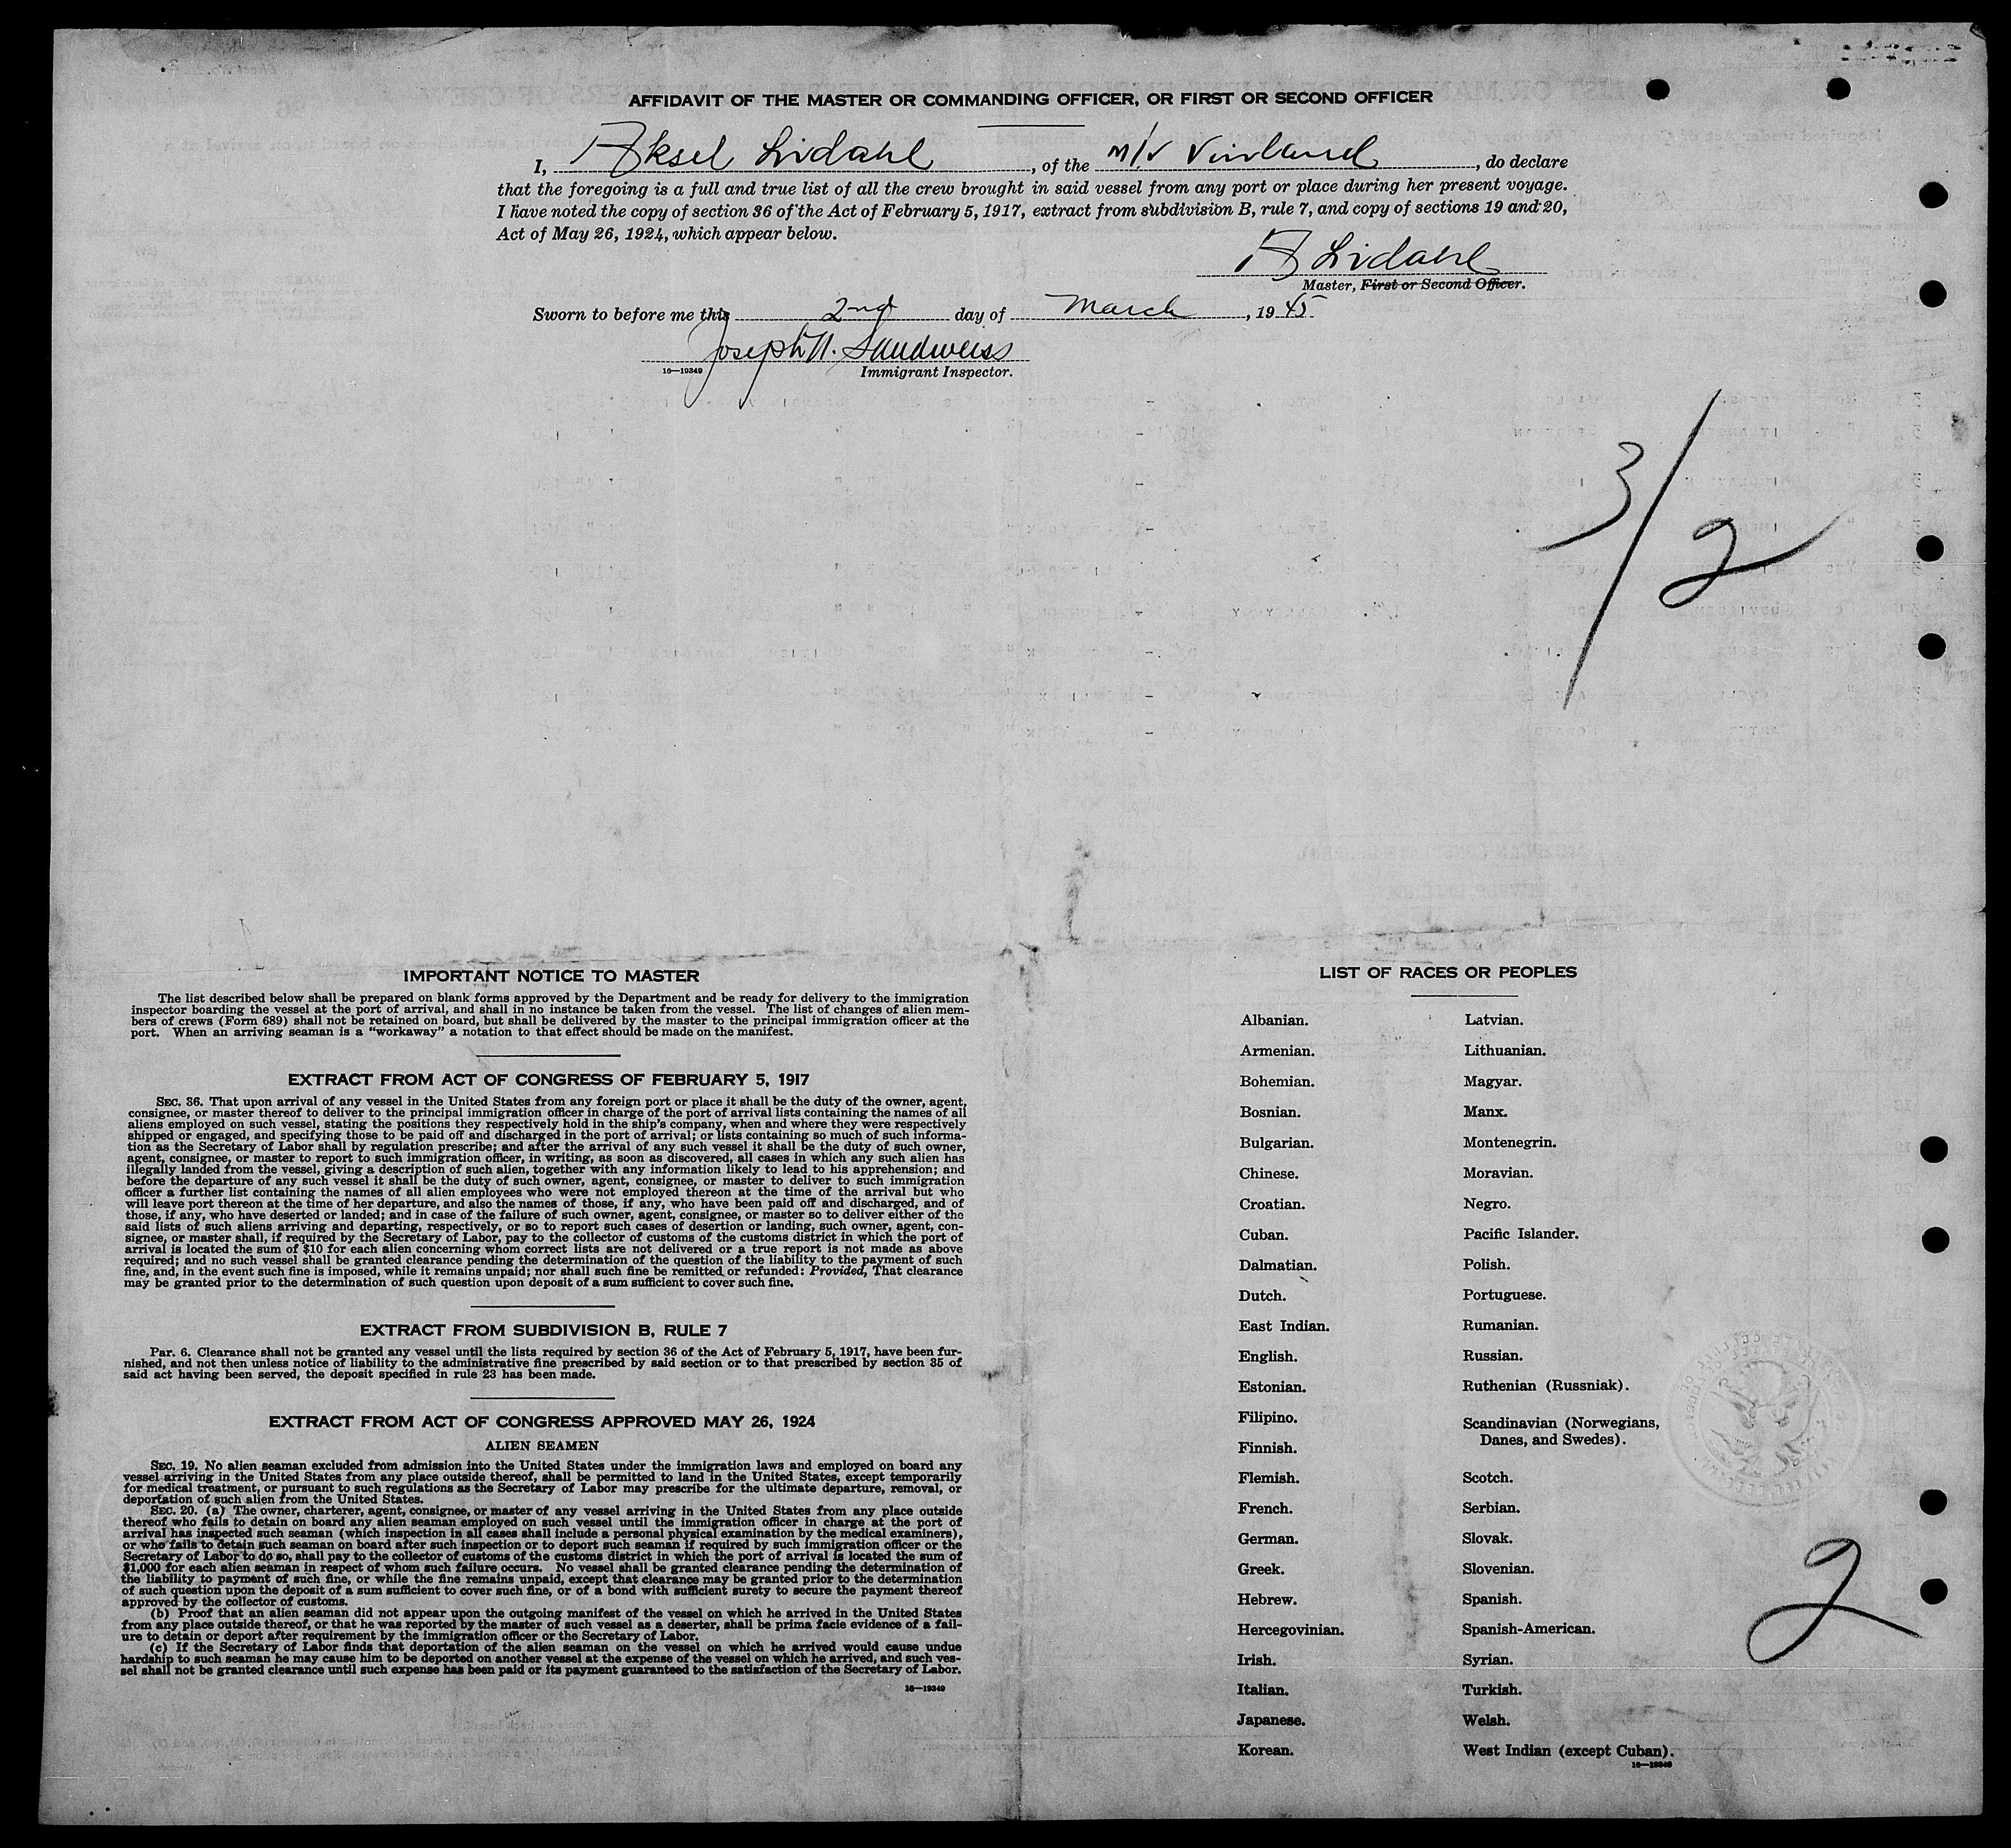 AFFIDAVIT OF THE MASTER OR COMMANDING OFFICER, OR FIRST OR SECOND OFFICER
I, Aksel Lidahl, of the M/V Vinland, do declare
that the foregoing is a full and true list of all the crew brought in said vessel from any port or place during her present voyage.
I have noted the copy of section 36 of the Act of February 5, 1917, extract from subdivision B, rule 7, and copy of sections 19 and 20,
Act of May 26, 1924, which appear below.
A Lidahl
Master, First or Second Officer.
Sworn to before me this 2nd day of March, 1945
Joseph N. Sandweiss
16—19349 Immigrant Inspector.
3/2
IMPORTANT NOTICE TO MASTER
The list described below shall be prepared on blank forms approved by the Department and be ready for delivery to the immigration
inspector boarding the vessel at the port of arrival, and shall in no instance be taken from the vessel. The list of changes of alien mem-
bers of crews (Form 689) shall not be retained on board, but shall be delivered by the master to the principal immigration officer at the
port. When an arriving seaman is a “workaway” a notation to that effect should be made on the manifest.
EXTRACT FROM ACT OF CONGRESS OF FEBRUARY 5, 1917
SEC. 36. That upon arrival of any vessel in the United States from any foreign port or place it shall be the duty of the owner, agent,
consignee, or master thereof to deliver to the principal immigration officer in charge of the port of arrival lists containing the names of all
aliens employed on such vessel, stating the positions they respectively hold in the ship's company, when and where they were respectively
shipped or engaged, and specifying those to be paid off and discharged in the port of arrival; or lists containing so much of such informa-
tion as the Secretary of Labor shall by regulation prescribe; and after the arrival of any such vessel it shall be the duty of such owner,
agent, consignee, or master to report to such immigration officer, in writing, as soon as discovered, all cases in which any such alien has
illegally landed from the vessel, giving a description of such alien, together with any information likely to lead to his apprehension; and
before the departure of any such vessel it shall be the duty of such owner, agent, consignee, or master to deliver to such immigration
officer a further list containing the names of all alien employees who were not employed thereon at the time of the arrival but who
will leave port thereon at the time of her departure, and also the names of those, if any, who have been paid off and discharged, and of
those, if any, who have deserted or landed; and in case of the failure of such owner, agent, consignee, or master so to deliver either of the
said lists of such aliens arriving and departing, respectively, or so to report such cases of desertion or landing, such owner, agent, con-
signee, or master shall, if required by the Secretary of Labor, pay to the collector of customs of the customs district in which the port of
arrival is located the sum of $10 for each alien concerning whom correct lists are not delivered or a true report is not made as above
required; and no such vessel shall be granted clearance pending the determination of the question of the liability to the payment of such
fine, and, in the event such fine is imposed, while it remains unpaid; nor shall such fine be remitted or refunded: Provided, That clearance
may be granted prior to the determination of such question upon deposit of a sum sufficient to cover such fine.
EXTRACT FROM SUBDIVISION B, RULE 7
Par. 6. Clearance shall not be granted any vessel until the lists required by section 36 of the Act of February 5, 1917, have been fur-
nished, and not then unless notice of liability to the administrative fine prescribed by said section or to that prescribed by section 35 of
said act having been served, the deposit specified in rule 23 has been made.
EXTRACT FROM ACT OF CONGRESS APPROVED MAY 26, 1924
ALIEN SEAMEN
SEC. 19. No alien seaman excluded from admission into the United States under the immigration laws and employed on board any
vessel arriving in the United States from any place outside thereof, shall be permitted to land in the United States, except temporarily
for medical treatment, or pursuant to such regulations as the Secretary of Labor may prescribe for the ultimate departure, removal, or
deportation of such alien from the United States.
SEC. 20. (a) The owner, charterer, agent, consignee, or master of any vessel arriving in the United States from any place outside
thereof who fails to detain on board any alien seaman employed on such vessel until the immigration officer in charge at the port of
arrival has inspected such seaman (which inspection in all cases shall include a personal physical examination by the medical examiners),
or who fails to detain such seaman on board after such inspection or to deport such seaman if required by such immigration officer or the
Secretary of Labor to do so, shall pay to the collector of customs of the customs district in which the port of arrival is located the sum of
$1,000 for each alien seaman in respect of whom such failure occurs. No vessel shall be granted clearance pending the determination of
the liability to payment of such fine, or while the fine remains unpaid, except that clearance may be granted prior to the determination
of such question upon the deposit of a sum sufficient to cover such fine, or of a bond with sufficient surety to secure the payment thereof
approved by the collector of customs.
(b) Proof that an alien seaman did not appear upon the outgoing manifest of the vessel on which he arrived in the United States
from any place outside thereof, or that he was reported by the master of such vessel as a deserter, shall be prima facie evidence of a fail-
ure to detain or deport after requirement by the immigration officer or the Secretary of Labor.
(c) If the Secretary of Labor finds that deportation of the alien seaman on the vessel on which he arrived would cause undue
hardship to such seaman he may cause him to be deported on another vessel at the expense of the vessel on which he arrived, and such ves-
sel shall not be granted clearance until such expense has been paid or its payment guaranteed to the satisfaction of the Secretary of Labor.
16—19349
LIST OF RACES OR PEOPLES
Albanian. Latvian.
Armenian. Lithuanian.
Bohemian. Magyar.
Bosnian. Manx.
Bulgarian. Montenegrin.
Chinese. Moravian.
Croatian. Negro.
Cuban. Pacific Islander.
Dalmatian. Polish.
Dutch. Portuguese.
East Indian. Rumanian.
English. Russian.
Estonian. Ruthenian (Russniak).
Filipino. Scandinavian (Norwegians,
Danes, and Swedes).
Finnish.
Flemish. Scotch.
French. Serbian.
German. Slovak.
Greek. Slovenian.
Hebrew. Spanish.
Hercegovinian. Spanish-American.
Irish. Syrian.
Italian. Turkish.
Japanese. Welsh.
Korean. West Indian (except Cuban).
16—19349
2